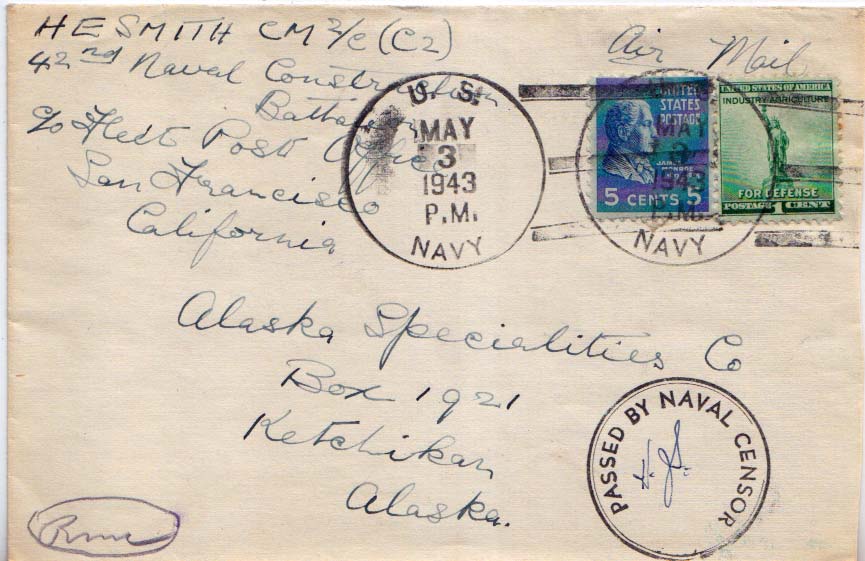 H E SMITH CM 2/C (C2)
42nd Naval Construction
Battalion
c/o Fleet Post Office
San Francisco
California
Air Mail
U. S.
MAY
3
1943
P.M.
NAVY
UNITED
STATES
POSTAGE
JAMES
MONROE
5 CENTS 5
UNITED STATES OF AMERICA
INDUSTRY AGRICULTURE
FOR DEFENSE
POSTAGE 1 CENT
MAY
3
1943
P.M.
NAVY
Alaska Specialities Co
Box 1921
Ketchikan
Alaska.
PASSED BY NAVAL CENSOR